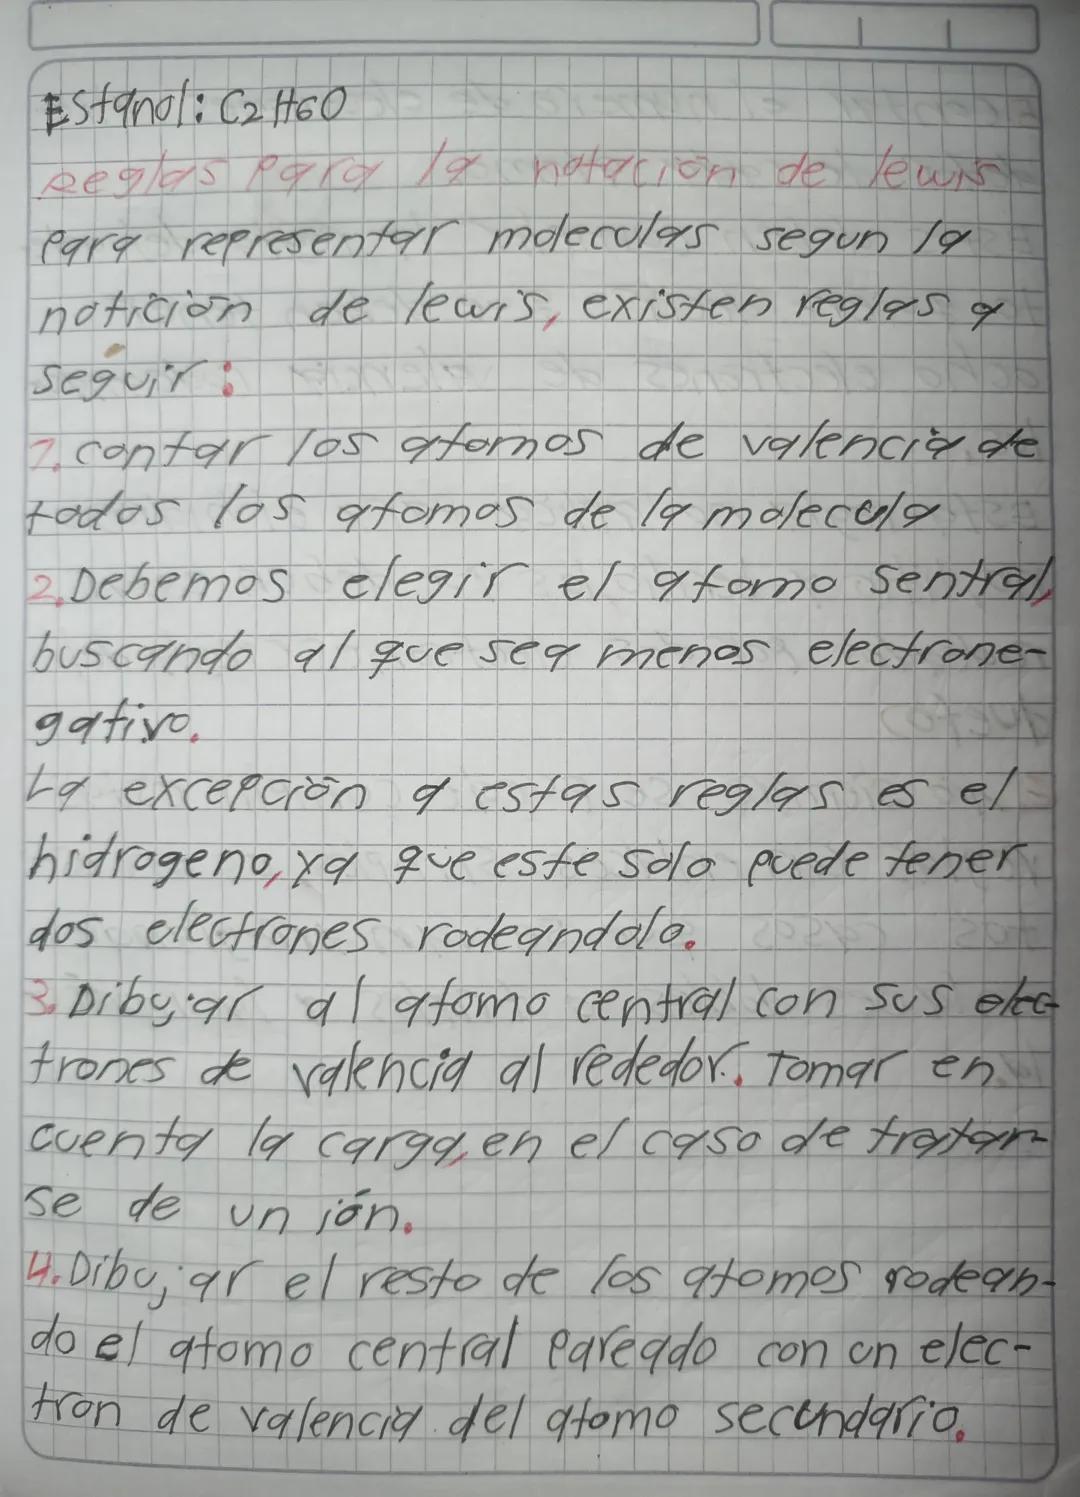 Estanol: C2H6O
Reglas para la notación de lewis
para representar moleculas segun la
notición de lewis, existen reglas a
seguir:
1. contar los atomos de valencia de
todos los atomos de la molecula
2. Debemos elegir el atomo sentral,
buscando al que sea menos electrone-
gativo.
La excepción a estas reglas es el
hidrogeno, ya que este solo puede tener
dos electrones rodeandolo.
3. Dibujar al atomo central con sus elec-
trones de valencia al rededor. Tomar en
cuenta la carga, en el caso de tratar
se de un ión.
4. Dibujar el resto de los atomos rodean-
do el atomo central pareado con un elec-
tron de valencia del atomo secundario.